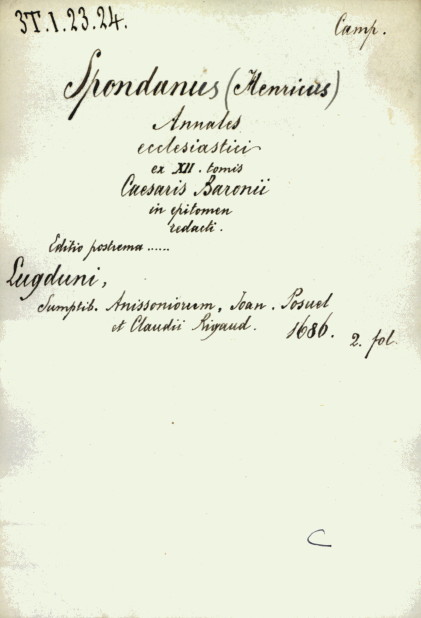 3T.I.23.24.
Camp.
Spondanus (Henricus)
Annales
ecclesiastici
ex XII. tomis
Caesaris Baronii
in epitomen
redacti.
Editio postrema......
Lugduni,
Sumptib. Anissoniorum, Joan. Posuel
et Claudii Rigaud. 1686. 2. fol.
C